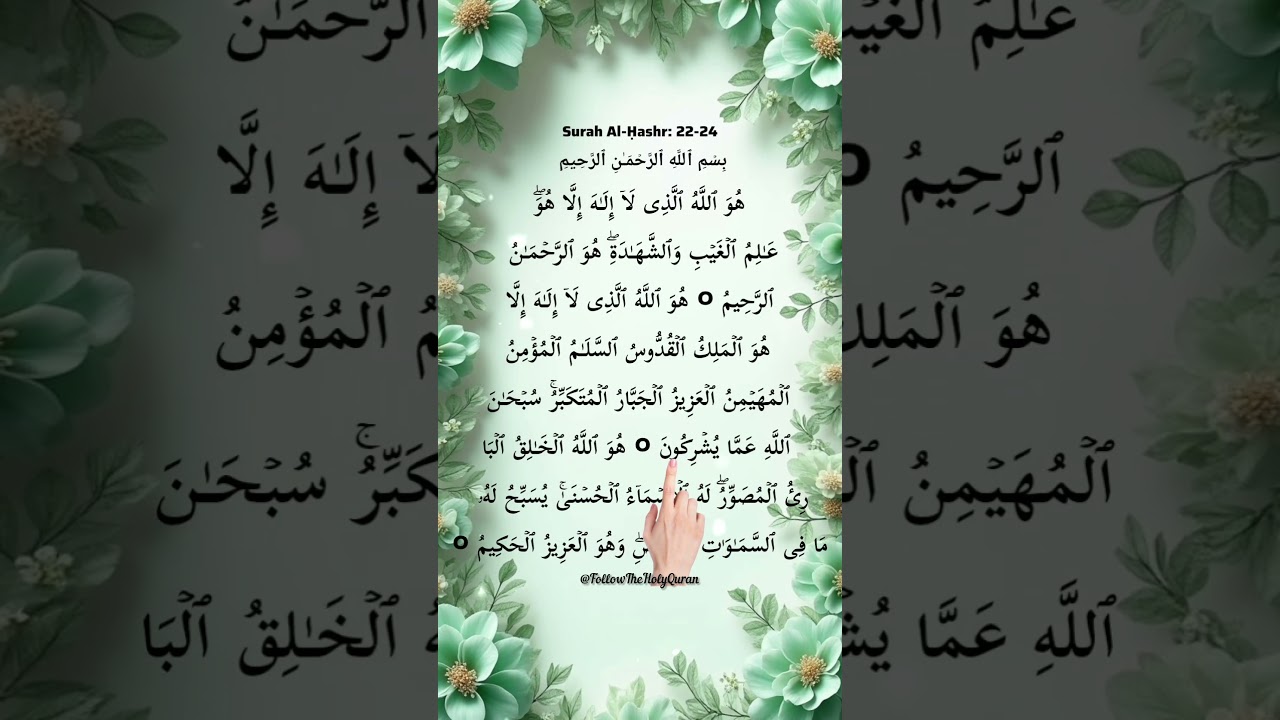 Surah Al-Ḥashr: 22-24
بِسْمِ ٱللَّهِ ٱلرَّحْمَـٰنِ ٱلرَّحِيمِ
هُوَ ٱللَّهُ ٱلَّذِى لَآ إِلَـٰهَ إِلَّا هُوَۖ
عَـٰلِمُ ٱلْغَيْبِ وَٱلشَّهَـٰدَةِۖ هُوَ ٱلرَّحْمَـٰنُ
ٱلرَّحِيمُ O هُوَ ٱللَّهُ ٱلَّذِى لَآ إِلَـٰهَ إِلَّا
هُوَ ٱلْمَلِكُ ٱلْقُدُّوسُ ٱلسَّلَـٰمُ ٱلْمُؤْمِنُ
ٱلْمُهَيْمِنُ ٱلْعَزِيزُ ٱلْجَبَّارُ ٱلْمُتَكَبِّرُۚ سُبْحَـٰنَ
ٱللَّهِ عَمَّا يُشْرِكُونَ O هُوَ ٱللَّهُ ٱلْخَـٰلِقُ ٱلْبَا
رِئُ ٱلْمُصَوِّرُۖ لَهُ ٱلْأَسْمَآءُ ٱلْحُسْنَىٰۚ يُسَبِّحُ لَهُۥ
مَا فِى ٱلسَّمَـٰوَٰتِ وَهُوَ ٱلْعَزِيزُ ٱلْحَكِيمُ O
@FollowTheHolyQuran